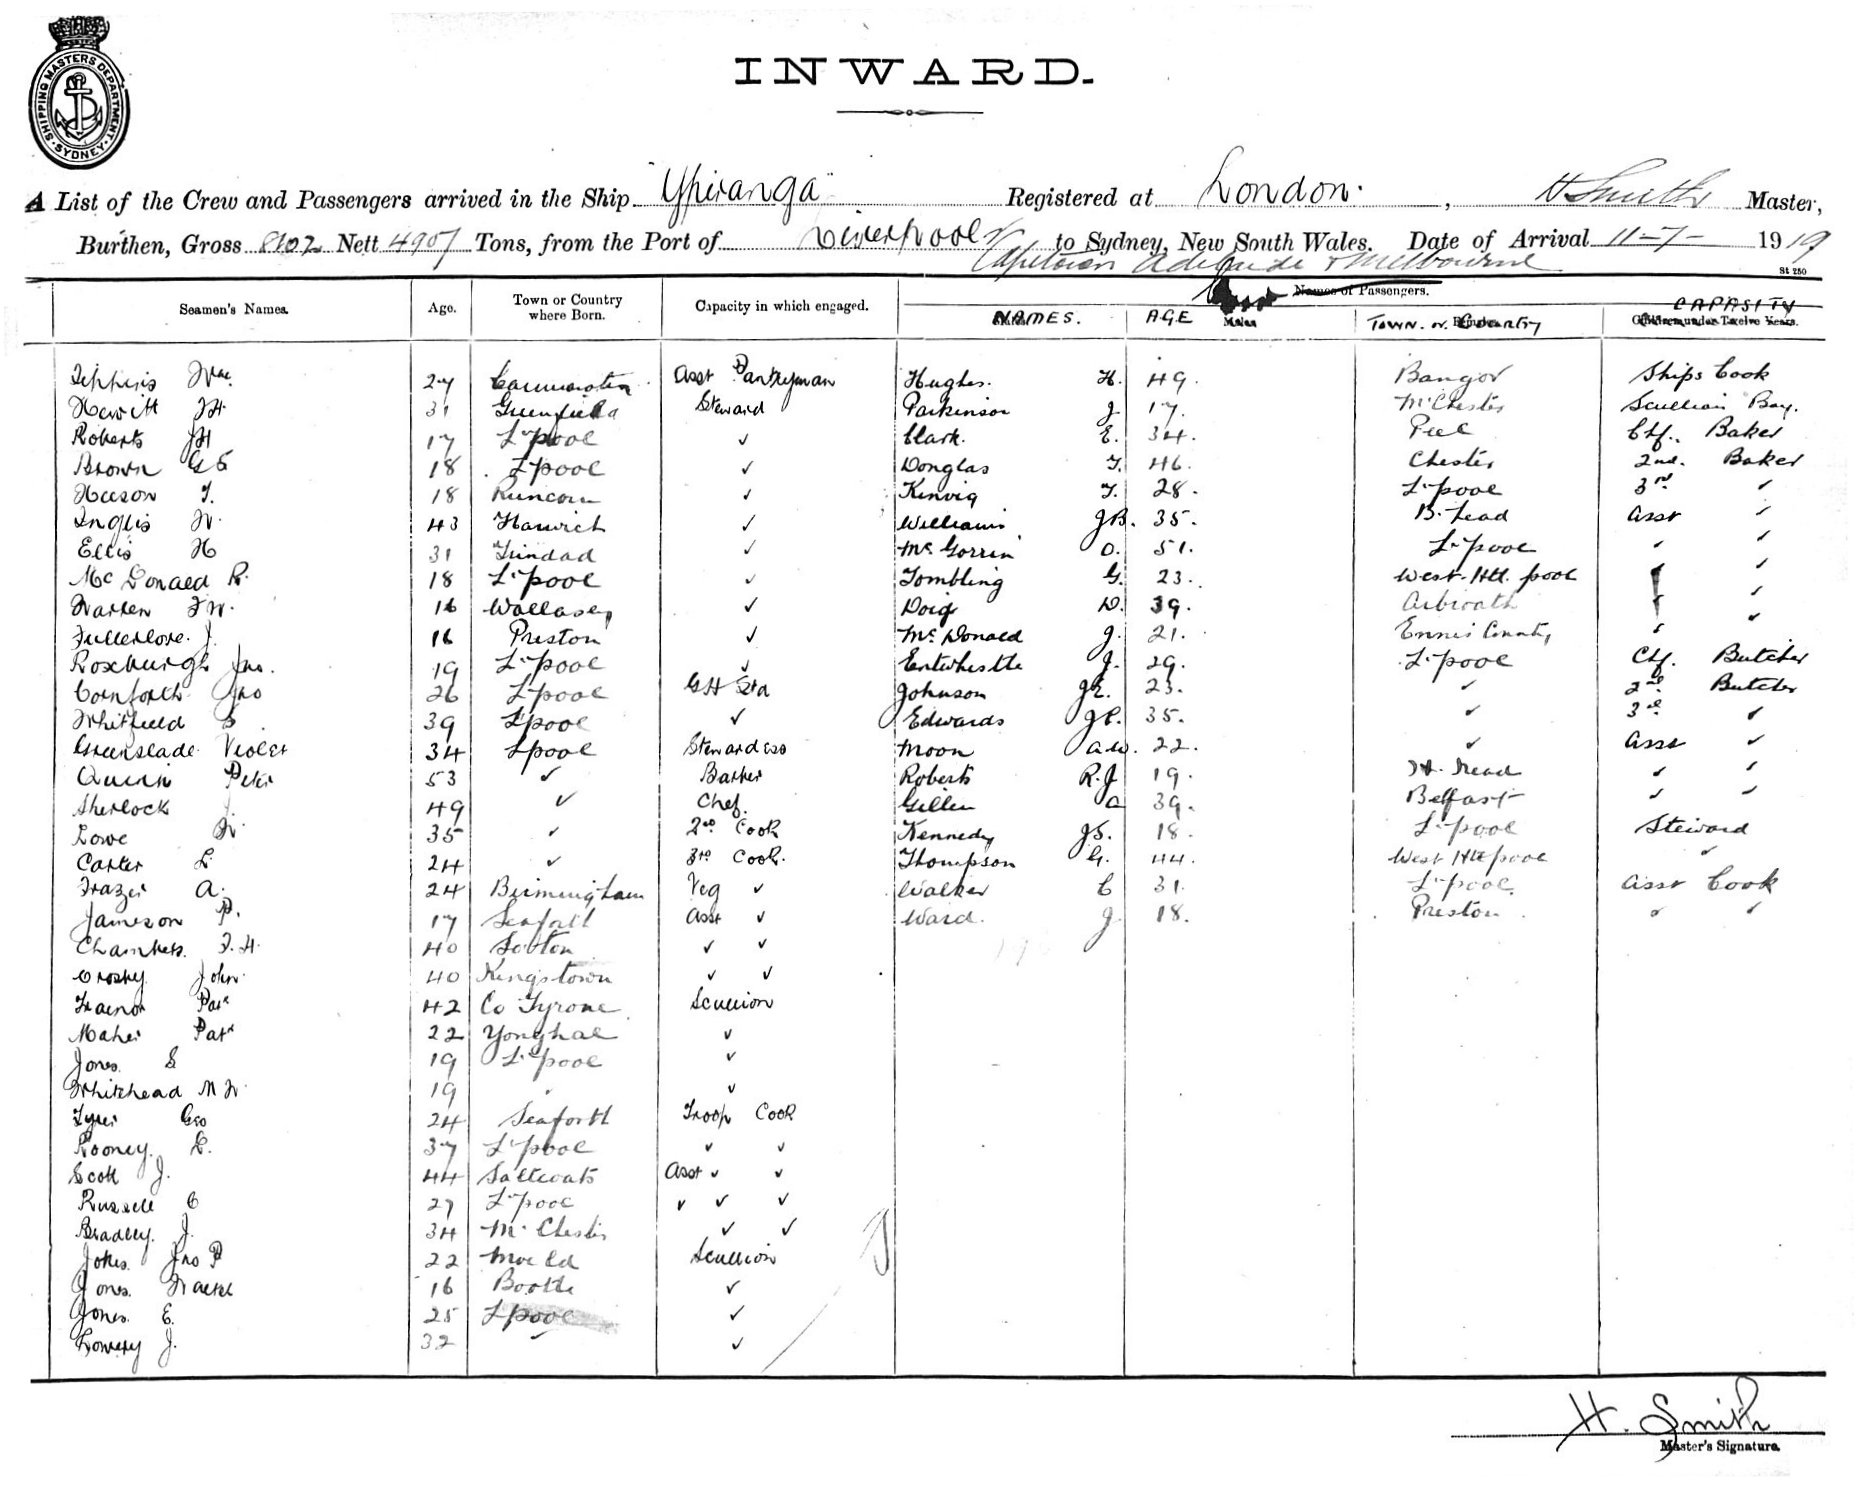 SHIPPING MASTERS DEPARTMENT. SYDNEY.
INWARD.
A List of the Crew and Passengers arrived in the Ship Ypiranga Registered at London. , H Smith Master,
Burthen, Gross 8102 Nett 4907 Tons, from the Port of Liverpool to Sydney, New South Wales. Date of Arrival 11-7- 1919
Capetown Adelaide & Melbourne
St 250
Names of Passengers.
Seamen's Names. Age. Town or Country where Born. Capacity in which engaged. NAMES. AGE Males TOWN. or Country CAPASITY Children under Twelve Years.
27 Asst Pantryman Hughes. H. 49. Bangor Ships Cook
Hewitt 31 Greenfield Steward Parkinson J. 17. McChester Scullion Boy.
Roberts JH 17 L'pool ✓ Clark. E. 34. Peel Chf. Baker
Brown G E 18 L'pool ✓ Donglas T. 46. Chester 2nd. Baker
Heeson T. 18 Runcorn ✓ Kinvig T. 28. L'pool 3rd ✓
Inglis W. 43 Harwich ✓ Williams JB. 35. B. head Asst ✓
Ellis H 31 Trindad ✓ Mc Gorrin O. 51. L'pool ✓ ✓
Mc Donald R. 18 L'pool ✓ Tombling G. 23. West. Htl. pool ✓ ✓
Warren F W. 16 Wallasey ✓ Doig D. 39. Arbroath ✓ ✓
Fullerlove. J. 16 Preston ✓ Mc Donald J. 21. Ennis County ✓
Roxburgh Jno. 19 L'pool ✓ Entwhistle J. 29. L'pool Chf. Butcher
Cornforth Jno 26 L'pool G H Std Johnson JE. 23. ✓ 2nd. Butcher
Whitfield S 39 L'pool ✓ Edwards 35. ✓ 3rd ✓
Greenslade Violet 34 L'pool Stewardess Moon A.W. 22. ✓ Asst ✓
Quinn Peter 53 ✓ Barber Roberts R.J 19. ✓ ✓
Sherlock J. 49 ✓ Chef. Gillen A 39. Belfast ✓ ✓
Lowe W. 35 ✓ 2nd Cook Kennedy JS. 18. L'pool Steward
Carter L. 24 ✓ 3rd Cook. Thompson G. 44. West Htlepool ✓
Frazer A. 24 Birmingham Veg ✓ Walker C 31. L'pool. Asst Cook
Jameson P. 17 Seaforth Asst ✓ Ward. J. 18. Preston ✓ ✓
Chambers. F.H. 40 ✓ ✓
Crosby John 40 Kingstown ✓ ✓
Trainor Patk 42 Co Tyrone Scullion
Maher Patk 22 Yonghal ✓
Jones. S 19 L'pool ✓
Whitehead M W 19 " ✓
Tyrer Geo 24 Seaforth Troop Cook
Rooney. L. 37 L'pool ✓ ✓
Scott J. 44 Saltcoats Asst ✓ ✓
Russell C 27 L'pool ✓ ✓ ✓
Bradley. J. 34 M'Chester ✓ ✓
Jno P 22 Mold Scullion
Jones. 16 Bootle ✓
Jones. E. 25 L'pool ✓
Lowery J. 32 ✓ ✓
H. Smith
Master's Signature.